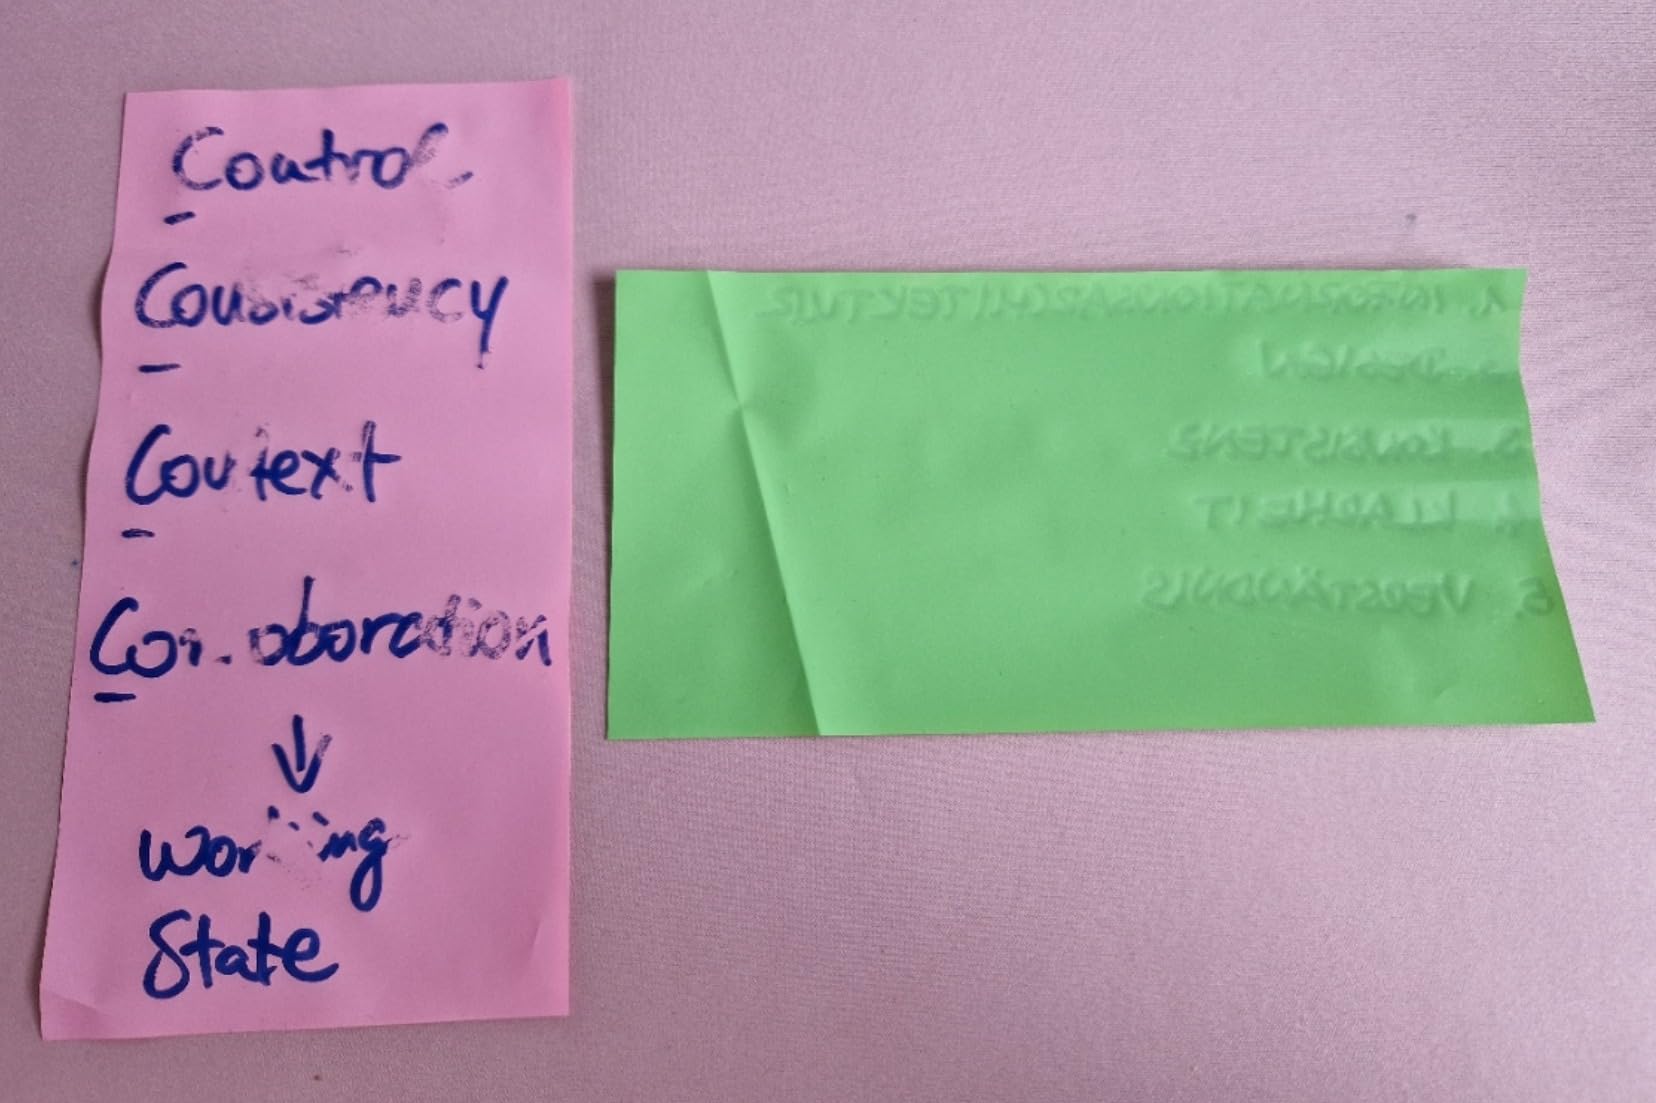 Control
Consistency
Context
Corroboration
↓
Working
State
1. INFORMATIONSARCHITEKTUR
2. DESIGN
3. KONSISTENZ
4. KLARHEIT
5. VERSTÄNDNIS